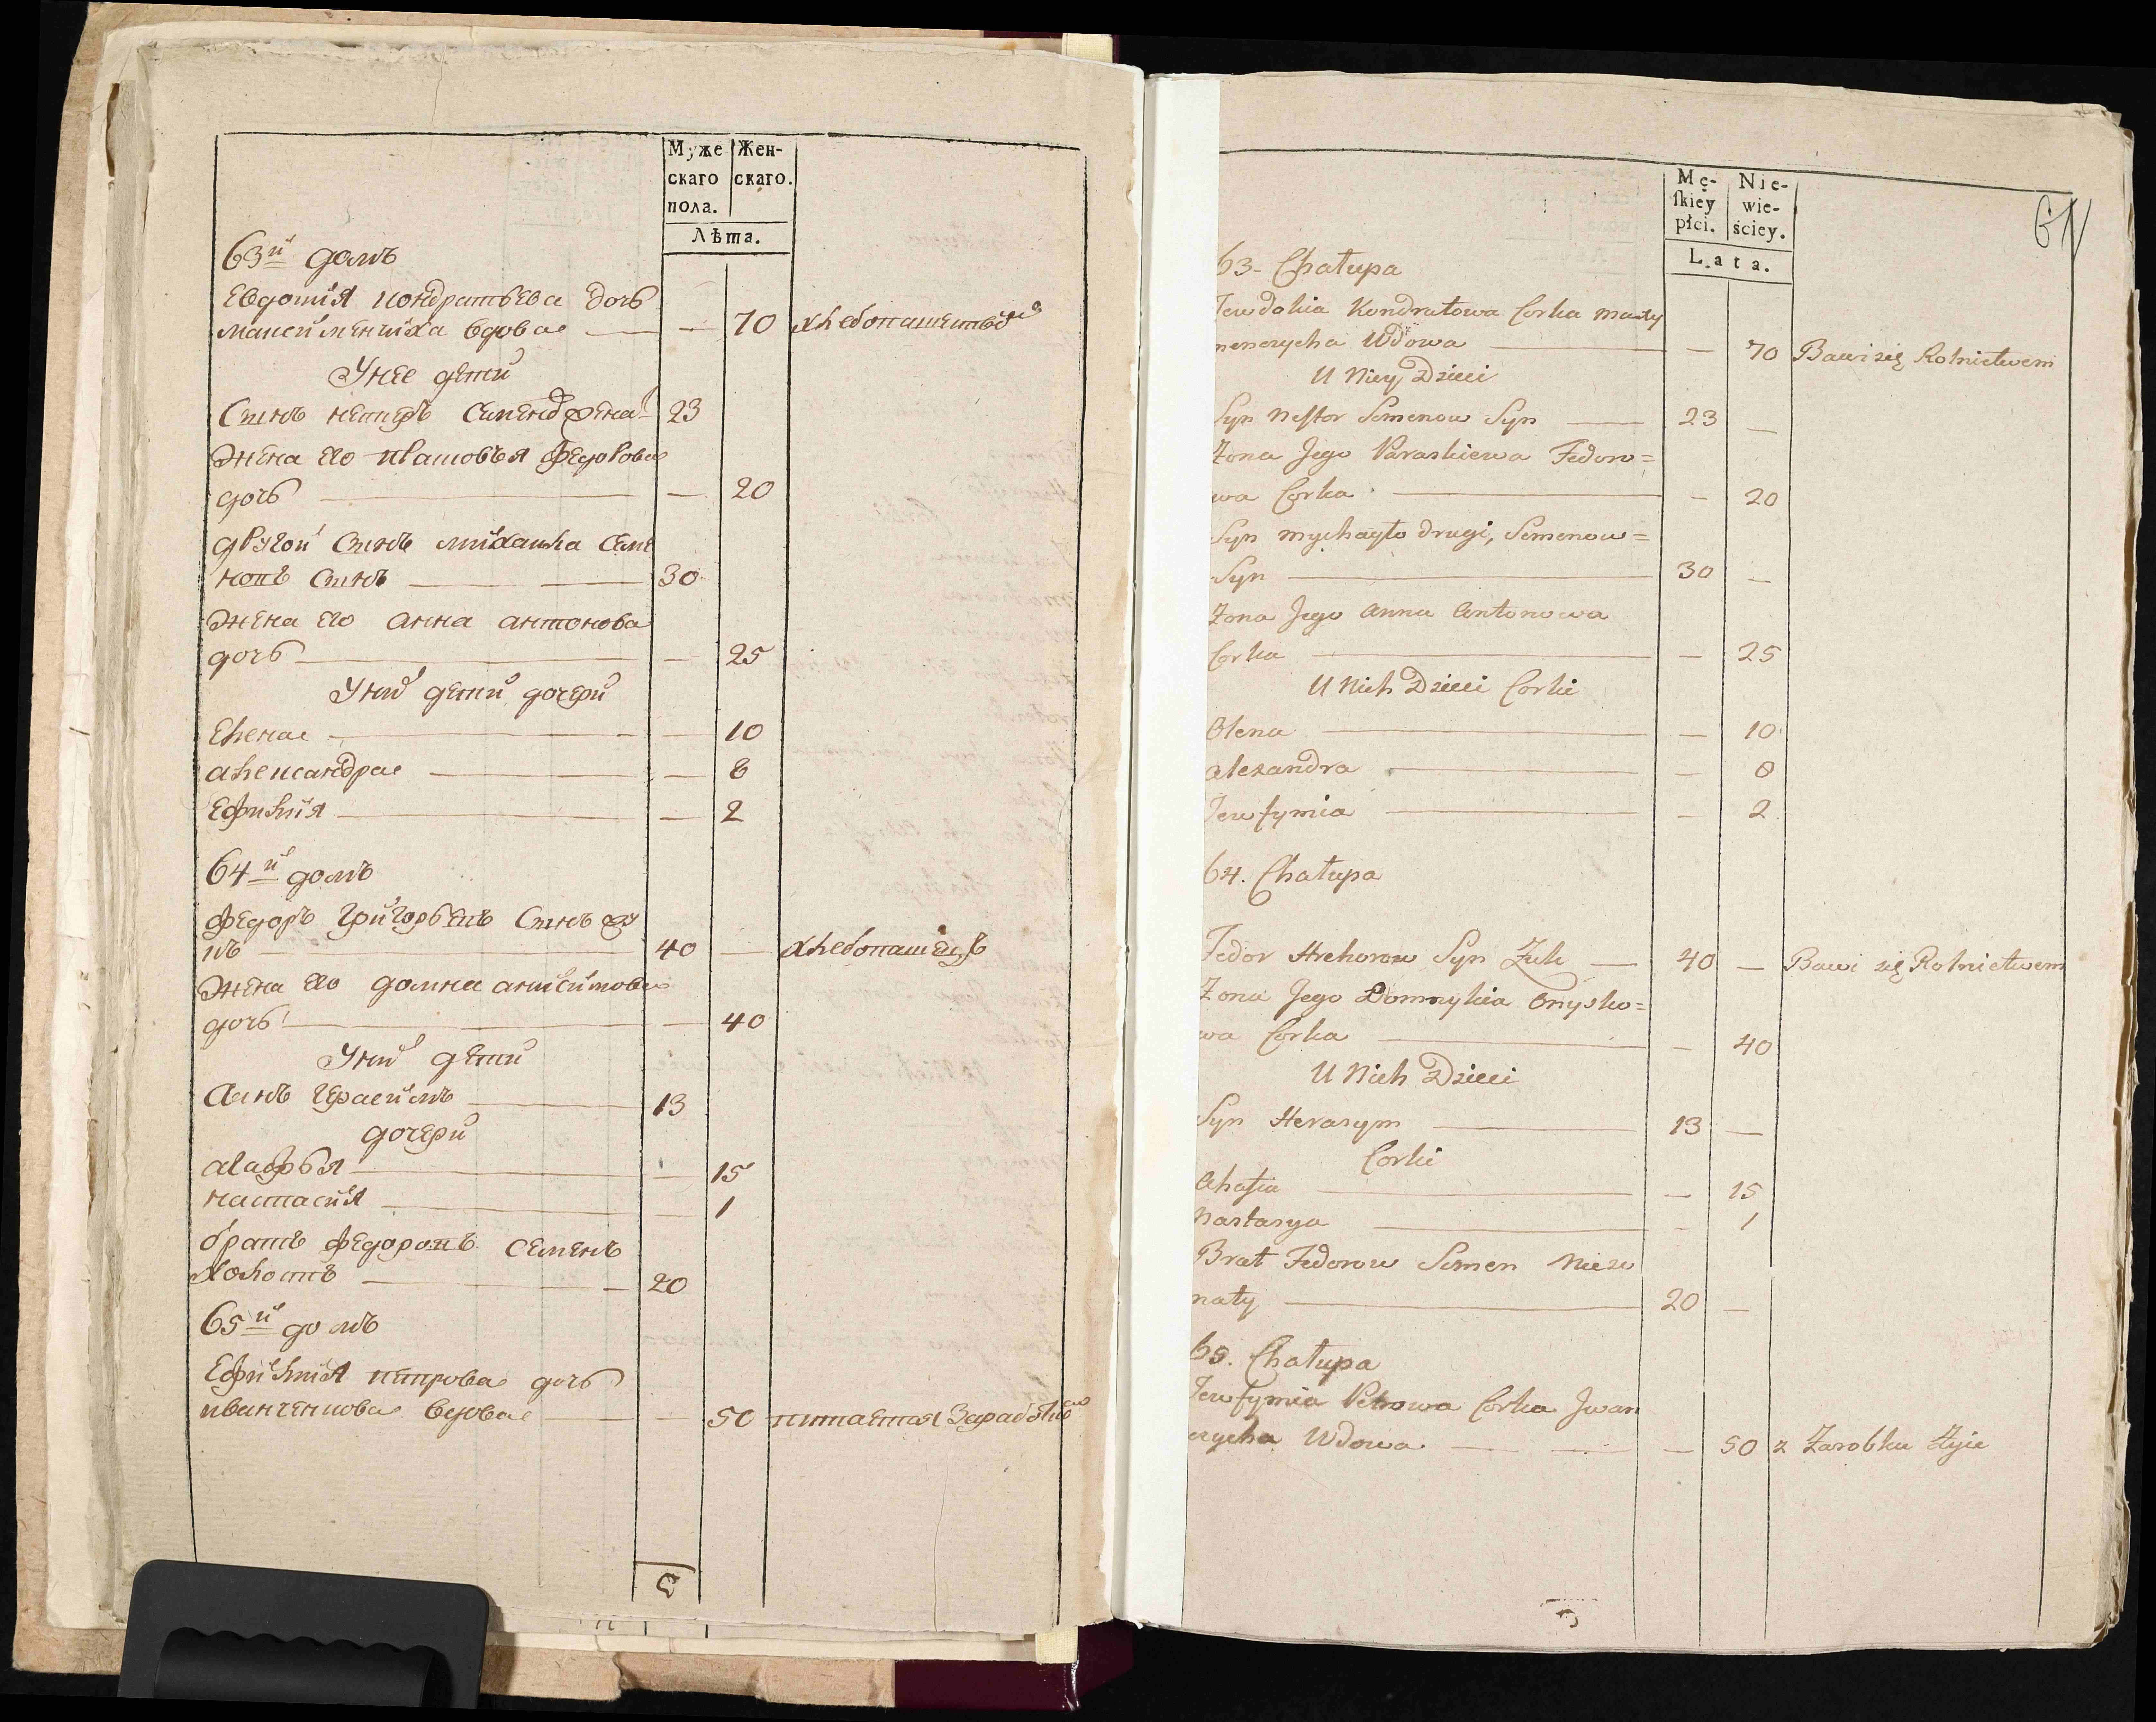 Муже
скаго
пола.
Жен-
скаго.
Лѣта.
63й домъ
Евдокия кондратьева дочь
вдова — — 70
Унее дети
Сынъ 23
Жена его Федорова
дочь — — 20
другой Сынъ михаила Семе
новъ Сынъ — 30
Жена его анна антонова
дочь — — 25
Унихъ дети дочери
Елена — — 10
александра — — 8
Ефимия — — 2
64й домъ
Федоръ Григорьевъ Сынъ жу
къ — 40 — хлебопашецъ
Жена его домна анисимова
дочь — — 40
Унихъ дети
Сынъ Герасимъ — 13
дочери
агафья — — 15
настасия — — 1
братъ Федоровъ Семенъ
холостъ — 20
65й домъ
Ефимия петрова дочь
иванченкова вдова — — 50 питается
Mę-
ſkiey
płci.
Nie-
wie-
ściey.
Lata.
61
63- Chałupa
Jewdokia Kondratowa Corka
Wdowa — — 70 Bawi się Rolnictwem
U Niey Dzieci
Syn Nestor Semenow Syn — 23 —
Żona Jego Paraskiewa Fedoro=
wa Corka — — 20
Syn Mychayło drugi, Semenow=
Syn — 30 —
Żona Jego Anna Antonowa
Corka — — 25
U Nich Dzieci Corki
Olena — — 10
Alexandra — — 8
Jewfymia — — 2
64. Chałupa
Fedor Hrehorow Syn Żuk — 40 — Bawi się Rolnictwem
Żona Jego Domnykia Onysko=
wa Corka — — 40
U Nich Dzieci
Syn Herasym — 13 —
Corki
Ahafia — — 15
Nastasya — — 1
Brat Fedorow Semen Nieżo
naty — 20 —
65. Chałupa
Jewfymia Petrowa Corka Jwan
czycha Wdowa — — 50 z Zarobku Żyie